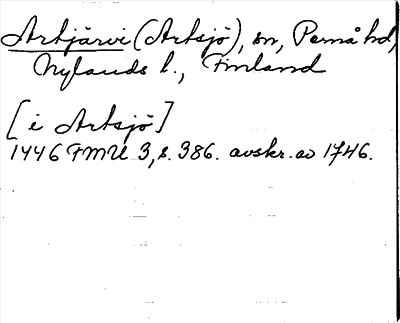 Artjärvi (Artsjö), sn, Pernå hd,
Nylands l., Finland
[i Artsjö]
1446 FMU 3, s. 386. avskr. av 1746.